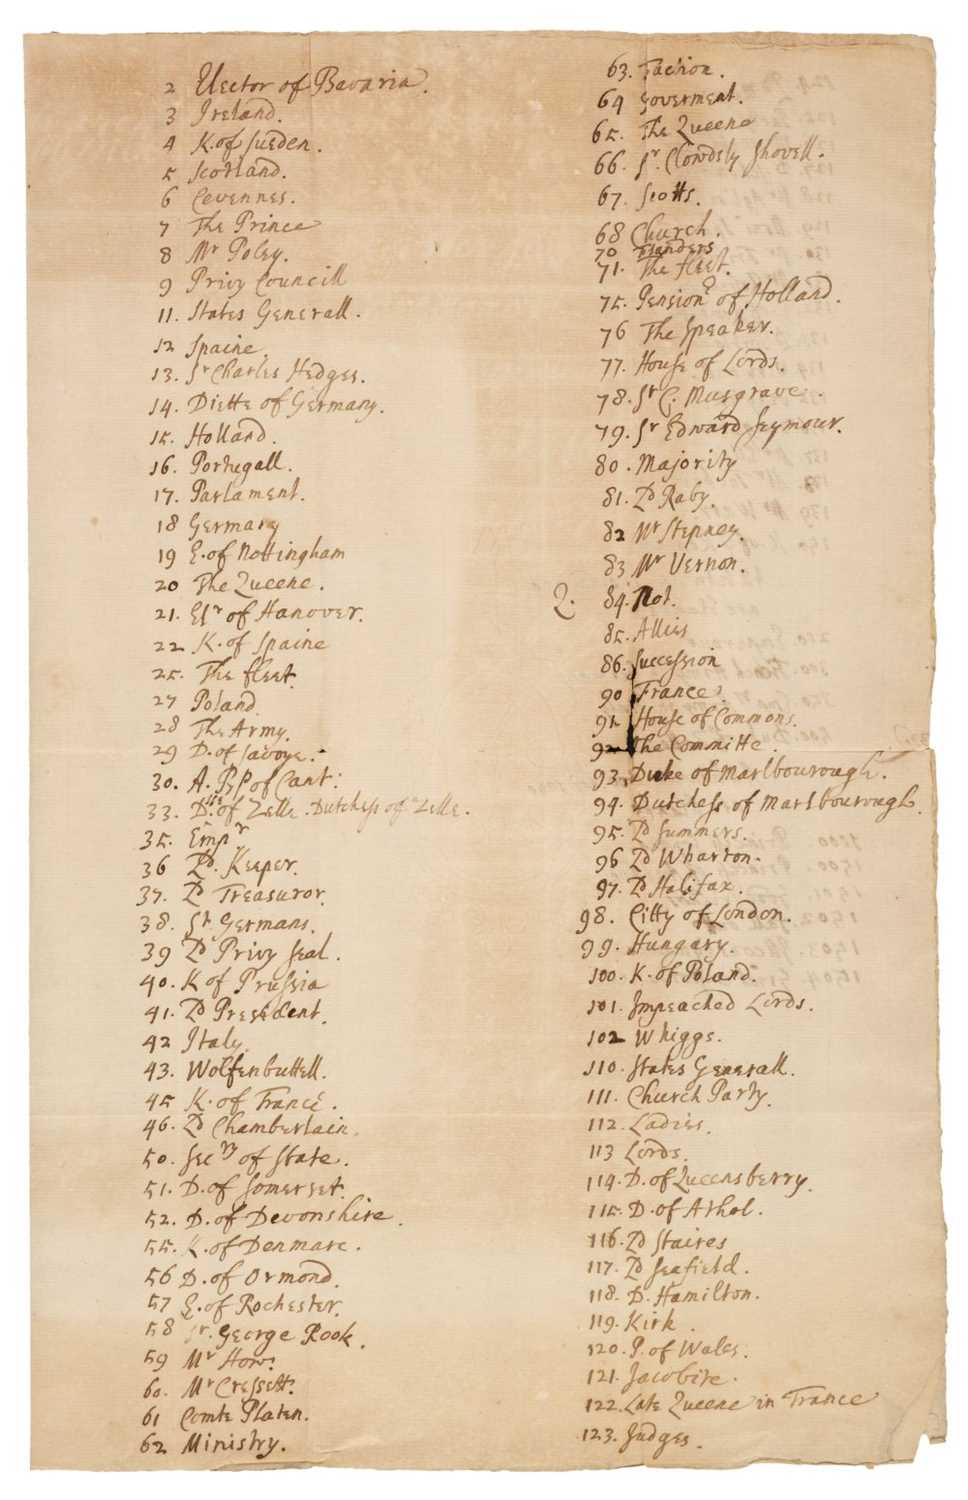 2 Elector of Bavaria.
3 Ireland.
4 K. of Sueden.
5 Scotland.
6 Cevennes.
7 The Prince
8 Mr Poley.
9 Privy Councill
11. States Generall.
12 Spaine.
13. Sr Charles Hedges.
14. Diette of Germany.
15. Holland.
16. Portugall.
17. Parlament.
18 Germany
19 E. of Nottingham
20 The Queene.
21. Elr of Hanover.
22 K. of Spaine
25. The fleet.
27 Poland
28 The Army.
29 D. of Savoye.
30. A. BP of Cant:
33. D. of Zelle. Dutchess of Zelle.
35. Empr
36 Ld. Keeper.
37. Ld Treasuror.
38. St. Germans.
39 Ld Privy Seal.
40. K of Prussia
41. Ld President.
42 Italy.
43. Wolfenbuttell.
45 K. of France.
46. Ld Chamberlain.
50. Secry of State.
51. D. of Somerset.
52. D. of Devonshire.
55. K. of Denmarc.
56 D. of Ormond.
57 E. of Rochester.
58 Sr. George Rook.
59 Mr How.
60. Mr Cressett.
61 Comte Platen.
62 Ministry.
63. Faction.
64 Goverment.
65. The Queene
66. Sr. Clowdsly Shovell.
67. Scotts.
68 Church.
70 Flanders
71. The fleet.
75. Pension of Holland.
76 The Speaker.
77. House of Lords.
78. Sr C. Musgrave.
79. Sr Edward Seymour.
80. Majority
81. Ld Raby.
82 Mr Stepney.
83 Mr Vernon.
2. 84. Not.
85. Allies
86. Succession
90 France.
91 House of Commons.
92 The Committe.
93. Duke of Marlbourough.
94. Dutchess of Marlbourough.
95. Ld Summers.
96 Ld Wharton.
97. Ld Halifax.
98. Citty of London.
99. Hungary.
100. K. of Poland.
101. Impeached Lords.
102 Whiggs.
110. States Generall.
111. Church Party.
112. Ladies.
113 Lords.
114. D. of Queensberry.
115. D. of Athol.
116. Ld Staires
117. Ld Seafield.
118. D. Hamilton.
119. Kirk.
120. P. of Wales.
121. Jacobite.
122. Late Queene in France
123. Judges.